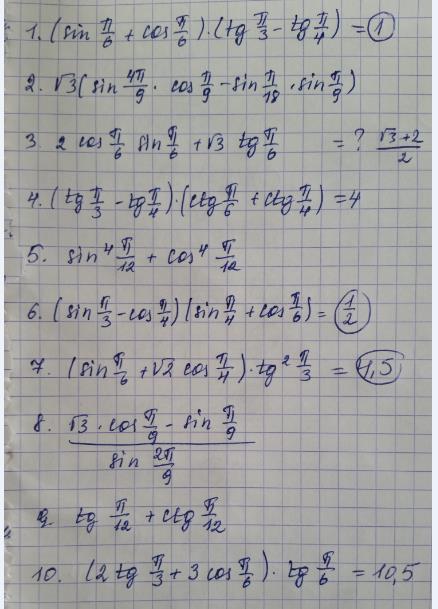 1. (sin π/6 + cos π/6)·(tg π/3 - tg π/4) = 1
2. √3(sin 4π/9 · cos π/9 - sin π/18 · sin π/9)
3. 2 cos π/6 sin π/6 + √3 tg π/6 = ? (√3+2)/2
4. (tg π/3 - tg π/4)·(ctg π/6 + ctg π/4) = 4
5. sin⁴ π/12 + cos⁴ π/12
6. (sin π/3 - cos π/4)(sin π/4 + cos π/6) = 1/2
7. (sin π/6 + √2 cos π/4)·tg² π/3 = 4,5
8. (√3 · cos π/9 - sin π/9) / (sin 2π/9)
9. tg π/12 + ctg π/12
10. (2 tg π/3 + 3 cos π/6)· tg π/6 = 10,5